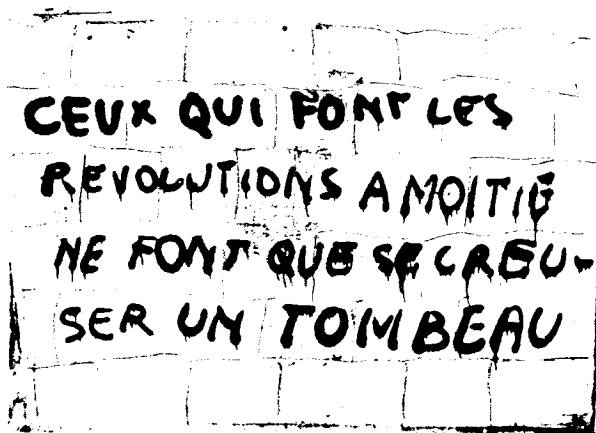 CEUX QUI FONT LES
REVOLUTIONS A MOITIÉ
NE FONT QUE SE CREU-
SER UN TOMBEAU